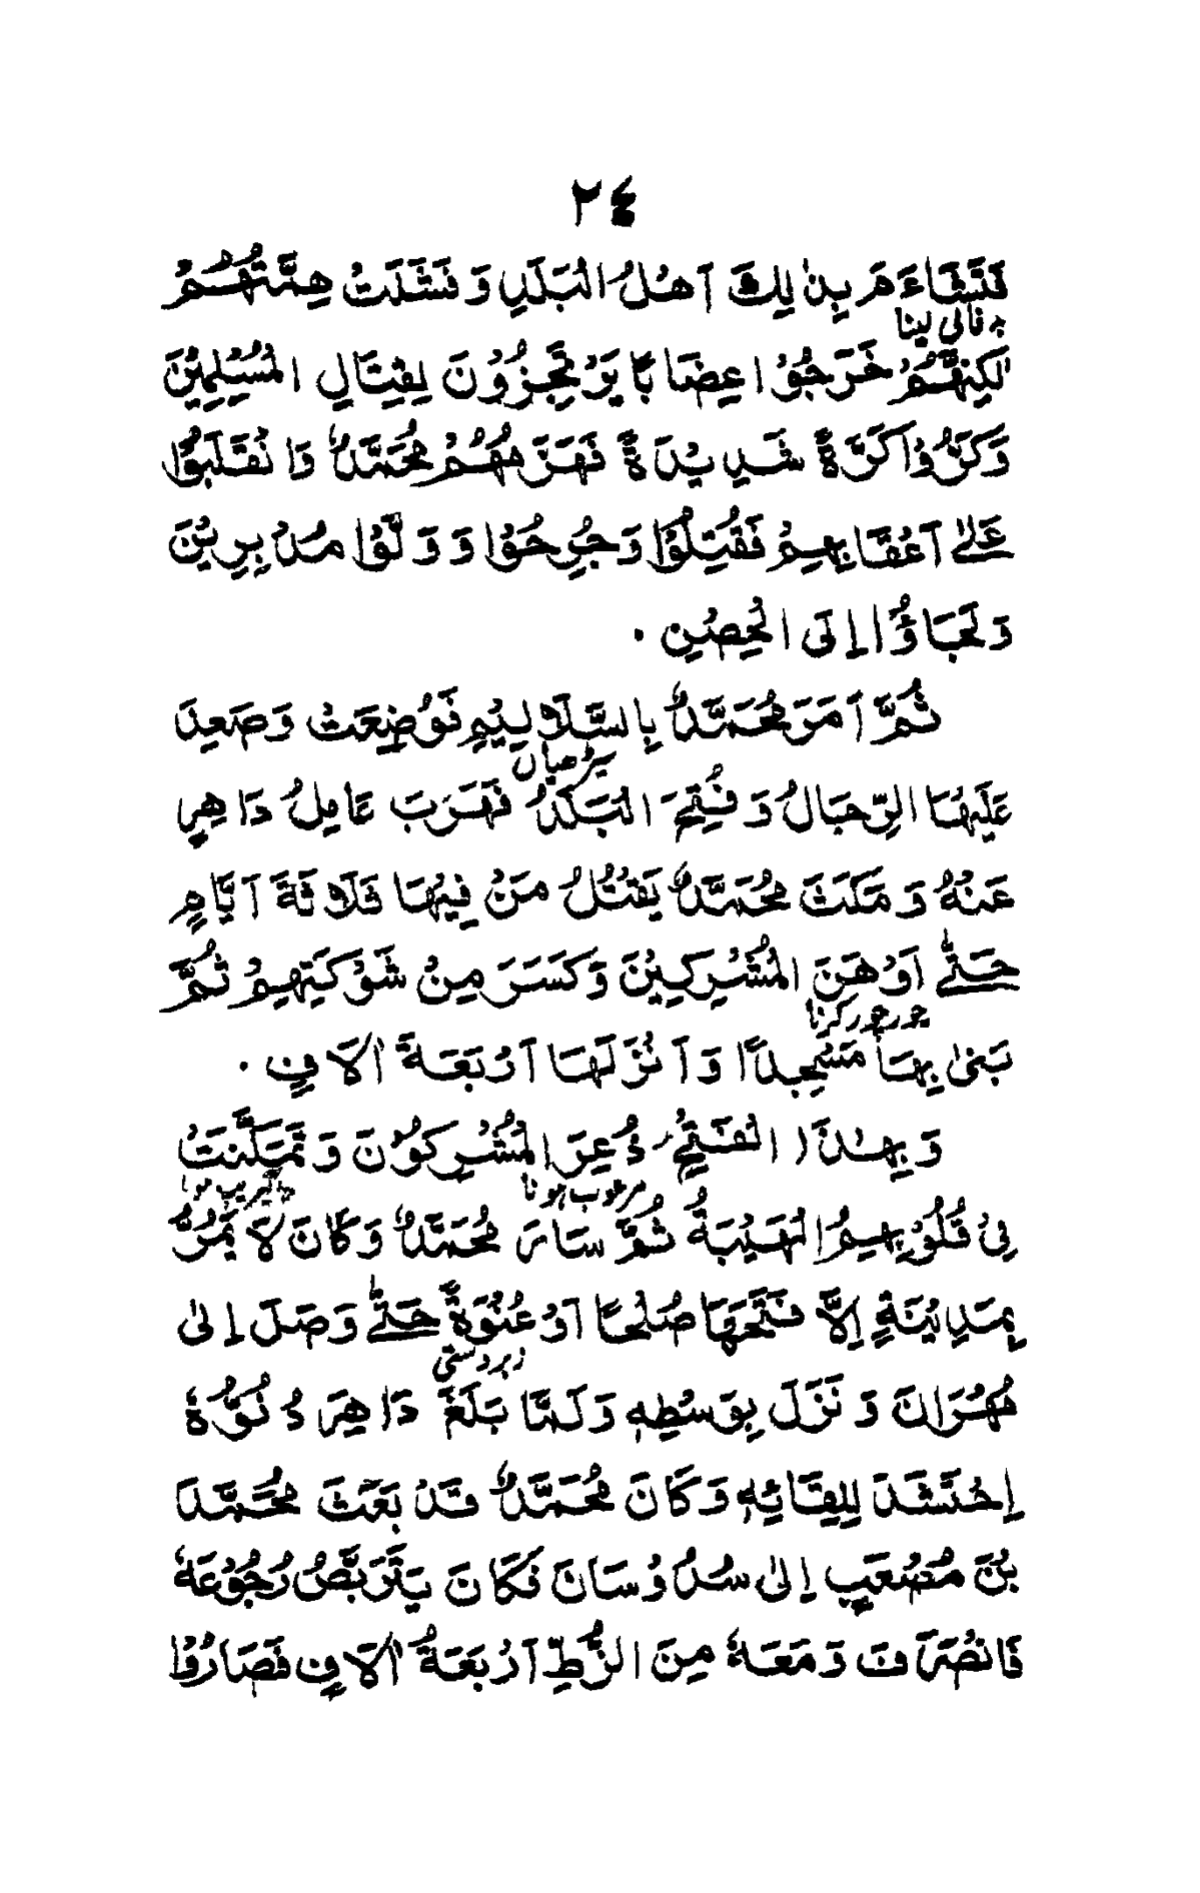 ٢٤
فَتَشَاءَمَ بِذٰلِكَ اَهْلُ الْبَلَدِ وَفَشَلَتْ هِمَّتُهُمْ
بدفالی لینا
لٰكِنَّهُمْ خَرَجُوْا عِضَابًا يَرْتَجِزُوْنَ لِقِتَالِ الْمُسْلِمِيْنَ
وَكَرُّوْا كَرَّةً شَدِيْدَةً فَهَزَمَهُمْ مُحَمَّدٌ وَانْقَلَبُوْا
عَلٰى اَعْقَابِهِمْ فَقُتِلُوْا وَجُرِحُوْا وَوَلَّوْا مُدْبِرِيْنَ
وَلَجَاؤُا اِلَى الْحِصْنِ ۔
ثُمَّ اَمَرَ مُحَمَّدٌ بِالسَّلَالِيْمِ فَوُضِعَتْ وَصَعِدَ
سیڑھیاں
عَلَيْهَا الرِّجَالُ وَفُتِحَ الْبَلَدُ فَهَرَبَ عَامِلُ دَاهِرٍ
عَنْهُ وَمَكَثَ مُحَمَّدٌ يَقْتُلُ مَنْ فِيْهَا ثَلَاثَةَ اَيَّامٍ
حَتّٰى اَوْهَنَ الْمُشْرِكِيْنَ وَكَسَرَ مِنْ شَوْكَتِهِمْ ثُمَّ
چور چور کرنا
بَنٰى بِهَا مَسْجِدًا وَاَنْزَلَهَا اَرْبَعَةَ اٰلَافٍ ۔
وَبِهٰذَا الْفَتْحِ ذُعِرَ الْمُشْرِكُوْنَ وَتَمَكَّنَتْ
مرعوب ہونا
فِىْ قُلُوْبِهِمُ الْهَيْبَةُ ثُمَّ سَارَ مُحَمَّدٌ وَكَانَ لَا يَمُرُّ
بِمَدِيْنَةٍ اِلَّا فَتَحَهَا صُلْحًا اَوْ عُنْوَةً حَتّٰى وَصَلَ اِلٰى
زبردستی
مُهْرَانَ وَنَزَلَ بِوَسْطِهٖ وَلَمَّا بَلَغَ دَاهِرَ دُنُوُّهٗ
اِحْتَشَدَ لِلِقَائِهٖ وَكَانَ مُحَمَّدٌ قَدْ بَعَثَ مُحَمَّدَ
بْنَ مُصْعَبٍ اِلٰى سُدُوْسَانَ فَكَانَ يَتَرَبَّصُ رُجُوْعَهٗ
فَانْصَرَفَ وَمَعَهٗ مِنَ الزُّطِّ اَرْبَعَةُ اٰلَافٍ فَصَارُوْا